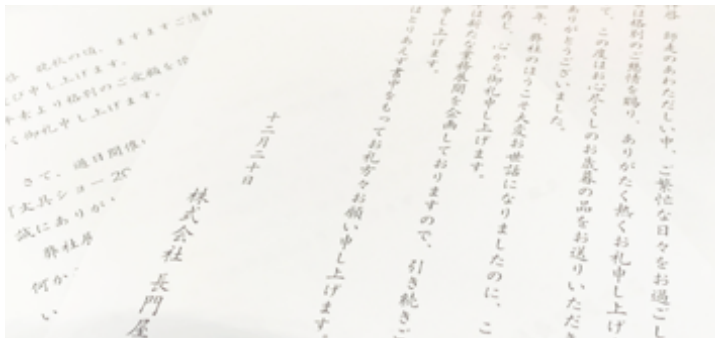 啓 師走のあわただしい中、ご繁忙な日々をお過ごし
は格別のご熱情を賜り、ありがたく熱くお礼申し上げ
て、この度はお心尽くしのお歳暮の品をお送りいただき
ありがとうございました。
年、弊社のほうこそ大変お世話になりましたのに、こ
に存じ、心から御礼申し上げます。
はあらたな業務展開を企画しておりますので、引き続きご
申し上げます。
はとりあえず書中をもってお礼方々お願い申し上げます。
十二月二十日
株式会社 長門屋
啓 晩秋の頃、ますますご清祥
び申し上げます。
年来より格別のご愛顧を
く御礼申し上げます。
さて、過日開催
「文具ショー25
誠にありが
弊社展
何か
い